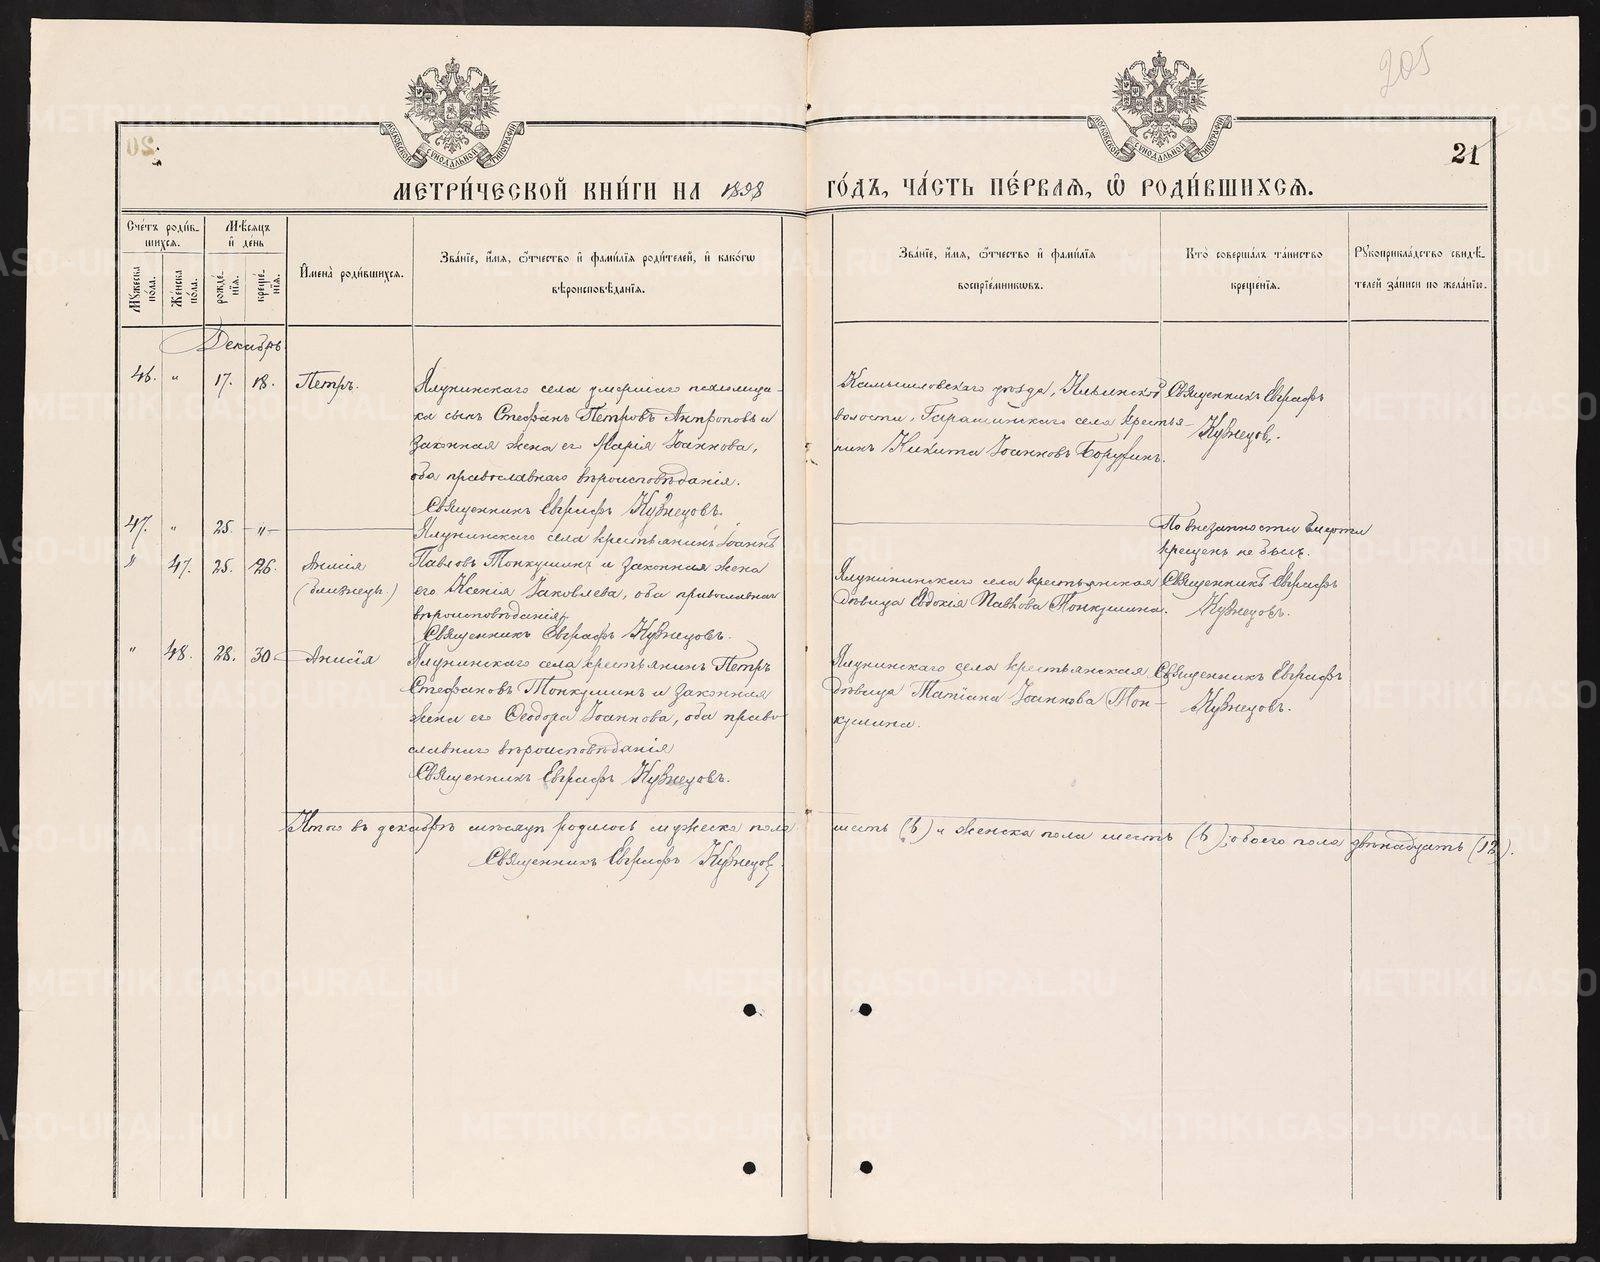 205
21
МЕТРИ́ЧЕСКОЙ КНИ́ГИ НА 1898 ГО́ДЪ, ЧА́СТЬ ПЕ́РВАЯ, Ѽ РОДИ́ВШИХСЯ.
Сче́тъ роди́в-
шихся.
Мѣ́сяцъ
и҆ де́нь
Мꙋ́жеска
по́ла.
Же́нска
по́ла.
рожде́-
нїя.
креще́-
нїя.
И҆мена̀ роди́вшихся.
Зва́нїе, и҆́мя, ѻ҆́тчество и҆ фами́лїя роди́телей, и҆ како́гѡ
вѣроисповѣ́данїя.
Зва́нїе, и҆́мя, ѻ҆́тчество и҆ фами́лїя
воспрїе́мниковъ.
Кто̀ соверша́лъ та́инство
креще́нїя.
Рꙋкоприкла́дство свидѣ́-
телей за́писи по жела́нїю.
Декабрь
46. " 17. 18. Петръ.
Ялунинскаго села умершаго псаломщи-
ка сынъ Стефанъ Петровъ Антроповъ и
законная жена его Марія Іоаннова,
оба православнаго вѣроисповѣданія.
Священникъ Евграфъ Кузнецовъ.
Камышловскаго уѣзда, Ильинской
волости, Гарашинскаго села крестья-
нинъ Никита Іоанновъ
Священникъ Евграфъ
Кузнецов.
47. " 25. -"-
Ялунинскаго села крестьянинъ Іоаннъ
Павловъ Тонкушинъ и законная жена
его Ксенія Іаковлева, оба православнаго
вѣроисповѣданія
Священникъ Евграфъ Кузнецовъ.
По внезапности смерти
крещенъ не былъ.
" 47. 25. 26. Анисія
(близнецъ.)
Ялунинскаго села крестьянская
дѣвица Евдокія Павлова Тонкушина.
Священникъ Евграфъ
Кузнецовъ.
" 48. 28. 30 Анисія
Ялунинскаго села крестьянинъ Петръ
Стефановъ Тонкушинъ и законная
жена его Ѳеодора Іоаннова, оба право-
славнаго вѣроисповѣданія
Священникъ Евграфъ Кузнецовъ.
Ялунинскаго села крестьянская
дѣвица Татіана Іоаннова Тон-
кушина.
Священникъ Евграфъ
Кузнецовъ.
Итого въ декабрѣ мѣсяцѣ родилось мужеска пола шесть (6) и женска пола шесть (6); обоего пола двѣнадцать (12).
Священникъ Евграфъ Кузнецов